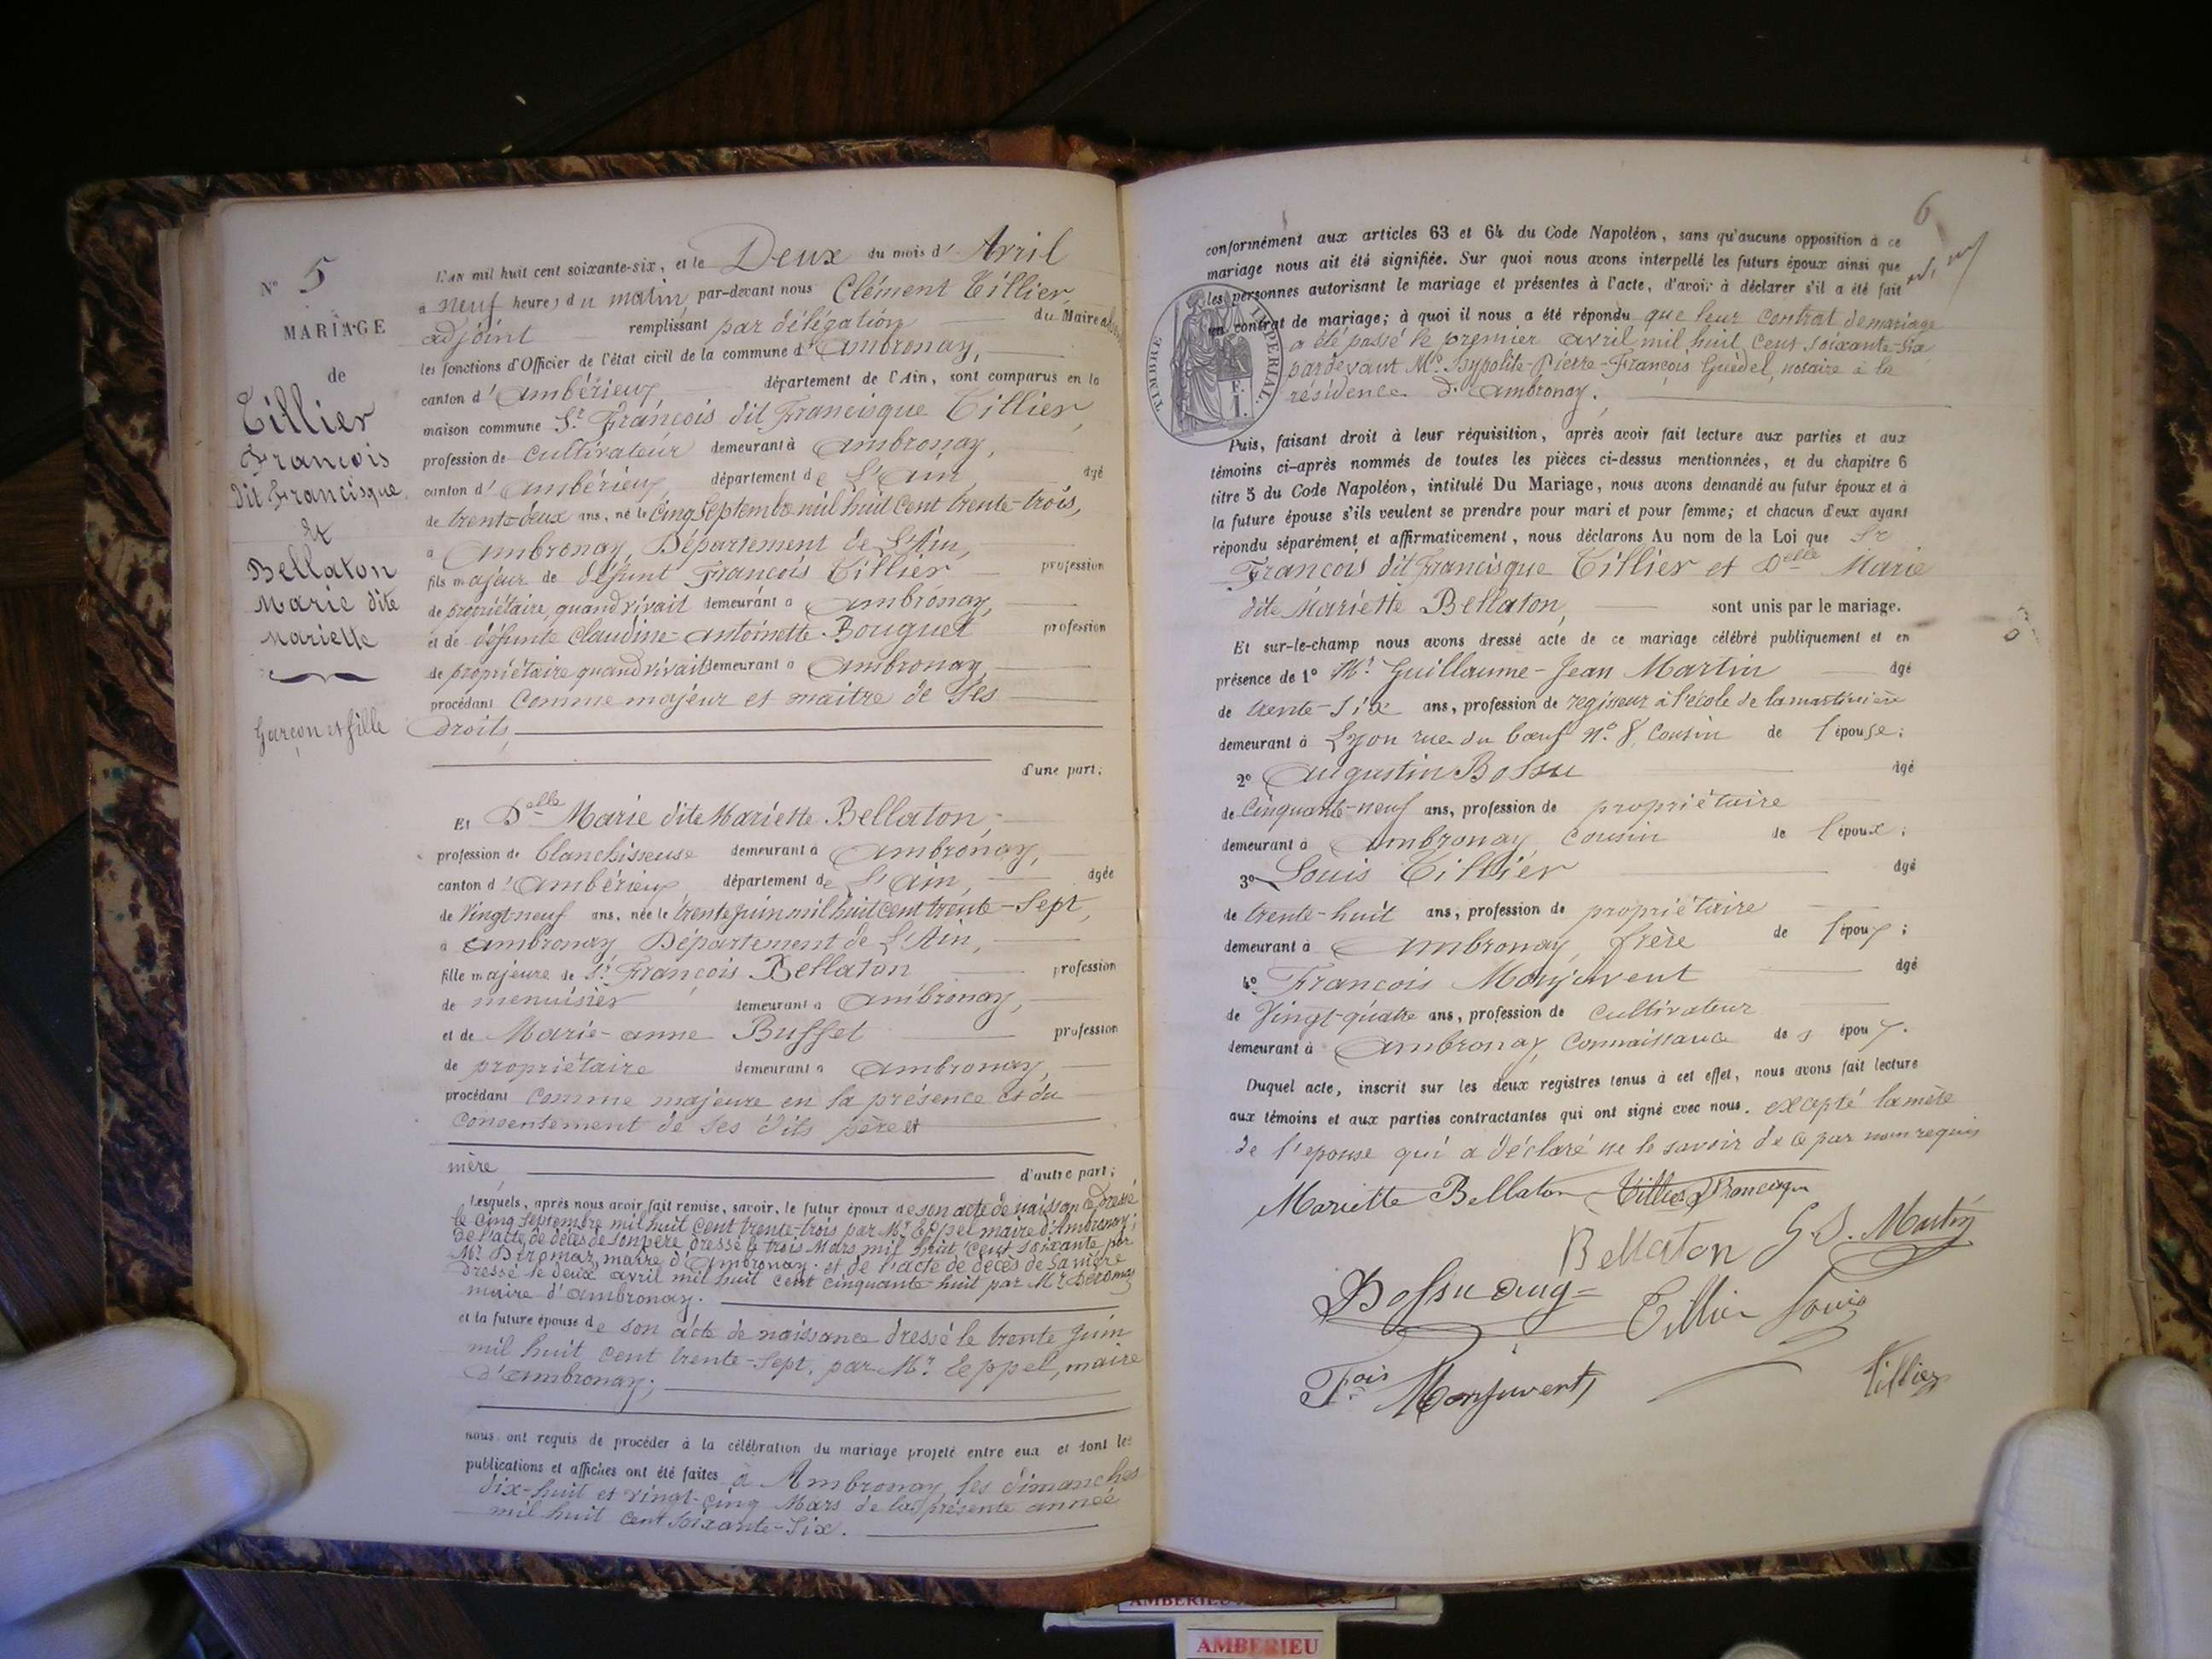 N° 5
MARIAGE
de
Tillier
François
dit Francisque
et
Bellaton
Marie dite
Mariette
Garçon et fille
L'an mil huit cent soixante-six, et le Deux du mois d' Avril
à neuf heures du matin, par-devant nous Clément Tillier,
adjoint remplissant par délégation du Maire
les fonctions d'Officier de l'état civil de la commune d'Ambronay,
canton d'Ambérieux, département de l'Ain, sont comparus en la
maison commune Sr François dit Francisque Tillier,
profession de Cultivateur demeurant à Ambronay,
canton d'Ambérieux, département de L'Ain, âgé
de trente-deux ans, né le Cinq Septembre mil huit cent trente-trois,
à Ambronay, Département de L'Ain,
fils majeur de défunt François Tillier profession
de propriétaire, quand vivait demeurant à Ambronay,
et de défunte Claudine-Antoinette Bouguet profession
de propriétaire quand vivait demeurant à Ambronay,
procédant Comme majeur et maître de ses
droits,
d'une part;
Et Delle Marie dite Mariette Bellaton,
profession de blanchisseuse demeurant à Ambronay,
canton d'Ambérieux, département de L'Ain, âgée
de Vingt-neuf ans, née le trente juin mil huit cent trente-sept,
à Ambronay, Département de L'Ain,
fille majeure de Sr François Bellaton profession
de menuisier demeurant à Ambronay,
et de Marie-anne Buffet profession
de propriétaire demeurant à Ambronay,
procédant Comme majeure en la présence et du
consentement de ses dits père et
mère d'autre part;
Lesquels, après nous avoir fait remise, savoir, le futur époux de son acte de naissance dressé
le cinq septembre mil huit cent trente-trois par Mr Eppel maire d'Ambronay;
de l'acte de décès de son père dressé le trois Mars mil huit cent soixante par
Mr Déromas, maire d'Ambronay. et de l'acte de décès de sa mère
dressé le deux avril mil huit cent cinquante-huit par Mr Déromas
maire d'Ambronay.
et la future épouse de son acte de naissance dressé le trente juin
mil huit cent trente-sept, par Mr Eppel, maire
d'Ambronay;
nous ont requis de procéder à la célébration du mariage projeté entre eux et dont les
publications et affiches ont été faites à Ambronay, les dimanches
dix-huit et vingt-cinq Mars de la présente année
mil huit cent soixante-six.
6
conformément aux articles 63 et 64 du Code Napoléon, sans qu'aucune opposition à ce
mariage nous ait été signifiée. Sur quoi nous avons interpellé les futurs époux ainsi que
les personnes autorisant le mariage et présentes à l'acte, d'avoir à déclarer s'il a été fait
un contrat de mariage; à quoi il nous a été répondu que leur contrat de mariage
a été passé le premier avril mil huit cent soixante-six
pardevant Me Hypolite-Pierre-François Guédel, notaire à la
résidence d'Ambronay.
TIMBRE IMPERIAL.
F.
1.
Puis, faisant droit à leur réquisition, après avoir fait lecture aux parties et aux
témoins ci-après nommés de toutes les pièces ci-dessus mentionnées, et du chapitre 6
titre 5 du Code Napoléon, intitulé Du Mariage, nous avons demandé au futur époux et à
la future épouse s'ils veulent se prendre pour mari et pour femme; et chacun d'eux ayant
répondu séparément et affirmativement, nous déclarons Au nom de la Loi que Sr
François dit Francisque Tillier et Delle Marie
dite Mariette Bellaton, sont unis par le mariage.
Et sur-le-champ nous avons dressé acte de ce mariage célébré publiquement et en
présence de 1° Mr Guillaume-Jean Martin âgé
de trente-six ans, profession de régisseur à l'école de lamartinière
demeurant à Lyon rue du bœuf n° 8, Cousin de l'épouse;
2° Augustin Bossu âgé
de Cinquante-neuf ans, profession de propriétaire
demeurant à Ambronay, Cousin de l'époux;
3° Louis Tillier âgé
de trente-huit ans, profession de propriétaire
demeurant à Ambronay, frère de l'époux;
4° François Monjuvent âgé
de Vingt-quatre ans, profession de Cultivateur
demeurant à Ambronay, Connaissance des époux.
Duquel acte, inscrit sur les deux registres tenus à cet effet, nous avons fait lecture
aux témoins et aux parties contractantes qui ont signé avec nous. excepté la mère
de l'épouse qui a déclaré ne le savoir de ce par nous requis
Mariette Bellaton Tillier Francisque
Bellaton G J. Martin
Bossu aug= Tillier Louis
Fois Monjuvent Tillier
AMBERIEU
AMBERIEU